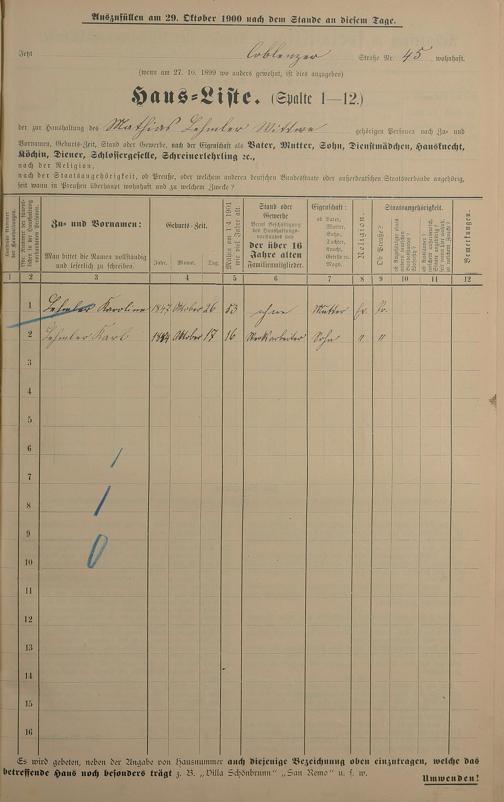 Auszufüllen am 29. Oktober 1900 nach dem Stande an diesem Tage.
Jetzt Coblenzer Straße Nr. 45 wohnhaft.
(wenn am 27. 10. 1899 wo anders gewohnt, ist dies anzugeben)
Haus-Liste. (Spalte 1—12.)
der zur Haushaltung des Mathias Lehmler Wittwe gehörigen Personen nach Zu- und
Vornamen, Geburts-Zeit, Stand oder Gewerbe, nach der Eigenschaft als Vater, Mutter, Sohn, Dienstmädchen, Hausknecht,
Köchin, Diener, Schlossergeselle, Schreinerlehrling ꝛc.,
nach der Religion,
nach der Staatsangehörigkeit, ob Preuße, oder welchem anderen deutschen Bundesstaate oder außerdeutschen Staatsverbande angehörig,
seit wann in Preußen überhaupt wohnhaft und zu welchem Zwecke?
Zu- und Vornamen:
Man bittet die Namen vollständig
und leserlich zu schreiben.
Geburts-Zeit.
Jahr. Monat. Tag.
Mithin am 1 4 1901
wie viel Jahre alt.
Stand oder
Gewerbe
der über 16
Jahre alten
Familienmitglieder.
Eigenschaft:
ob Vater,
Mutter,
Sohn,
Tochter,
Knecht,
Geselle u.
Magd.
Religion.
Staatsangehörigkeit.
Ob Preuße?
Bemerkungen.
1 2 3 4 5 6 7 8 9 10 11 12
1 Lehmler Karoline 1847 Oktober 26 53 ohne Mutter ev. Pr.
2 Lehmler Karl 1884 Oktober 17 16 Sohn " "
3
4
5
6
7
8
9
10
11
12
13
14
15
16
1
1
0
Es wird gebeten, neben der Angabe von Hausnummer auch diejenige Bezeichnung oben einzutragen, welche das
betreffende Haus noch besonders trägt z. B. „Villa Schönbrunn" „San Remo" u. s. w.
Umwenden!